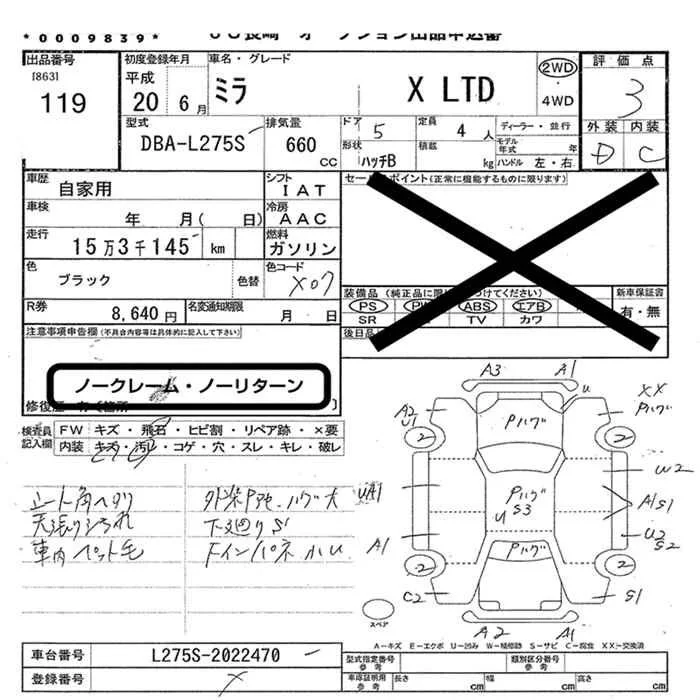 *0009839*
JU長崎 オークション出品申込書
出品番号 初度登録年月 車名・グレード 評価点
[863]
119
平成 20 6月
ミラ X LTD
2WD ・ 4WD
3
外装 内装
D C
型式 排気量 ドア 定員 ディーラー・並行
DBA-L275S 660 CC
5 4人
形状 積載 モデル年式 年
ハッチB kg ハンドル 左・右
車歴 自家用 シフト IAT
セールスポイント(正常に機能するものに限ります)
車検 年 月( 日) 冷房 AAC
走行 15万3千145 km 燃料 ガソリン
色 ブラック 色替 色コード X07
R券 8,640円 名変通知期限 月 日
装備品(純正品に限り つけてください) 新車保証書
PS PW ABS エアB 有・無
SR TV カワ
後日品
注意事項申告欄(不具合内容等は具体的に記入して下さい)
ノークレーム・ノーリターン
修復歴 有〔箇所 〕
検査員記入欄
FW キズ・飛石・ヒビ割・リペア跡・×要
内装 キズ・汚レ・コゲ・穴・スレ・キレ・破レ
天張りよごれ
車内ペット毛
下廻りS1
A3 A1
U
XX
Pハゲ
A2
U1
Pハゲ
2 2
W2
UA1
Pハゲ
S3
U
A1S1
A1
U2
S2
Pハゲ
2 2
C2 S1
A2 A1
スペア
A-キズ E-エクボ U-凹み W-補修跡 S-サビ C-腐食 XX-交換済
車台番号 L275S-2022470
登録番号
型式指定番号 参考 類別区分番号 参考
車庫証明用 参考 長さ cm 幅 cm 高さ cm